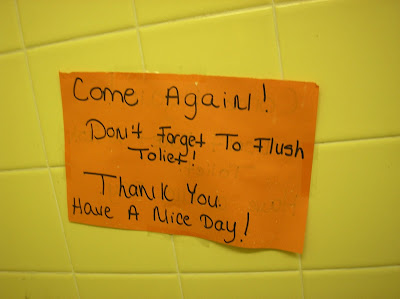 Come Again!
Don't Forget To Flush
Tolief!
Thank You.
Have A Nice Day!